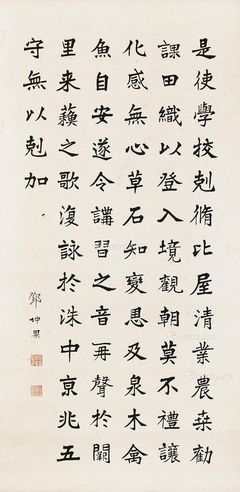 是使學校剋脩比屋清業農桒勸
課田織以登入境觀朝莫不禮讓
化感無心草石知變思及泉木禽
魚自安遂令講習之音再聲於闕
里来蘓之歌復詠於洙中京兆五
守無以剋加
鄧仲果